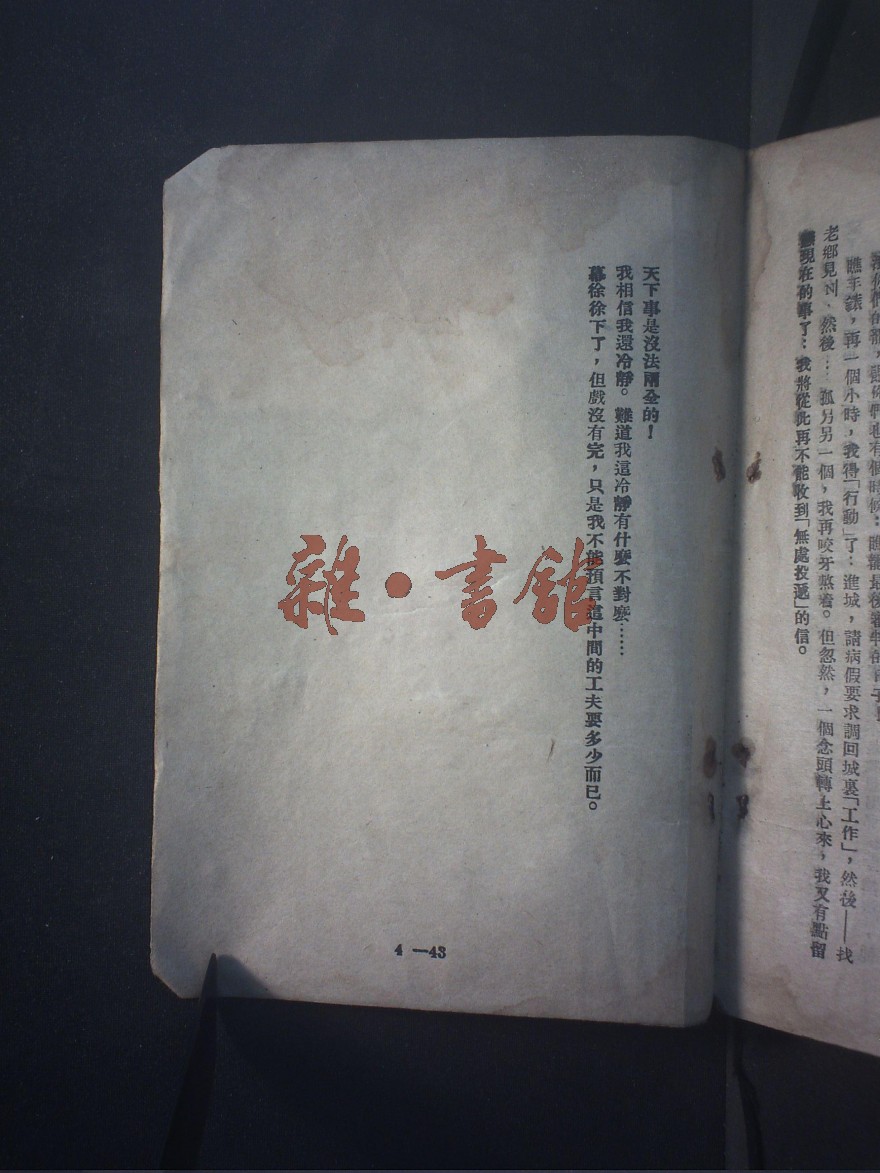 瞧手錶，再一個小時，我得「行動」了：進城，請病假要求調回城裏「工作」，然後——找
老鄉見到，然後… 孤另另一個，我再咬牙熬着。但忽然，一個念頭轉上心來，我又有點留
戀現在的事了：我將從此再不能收到「無處投遞」的信。
天下事是沒法兩全的！
我相信我還冷靜。難道我這冷靜有什麼不對麼……
幕徐徐下了，但戲沒有完，只是我不能預言這中間的工夫要多少而已。
4 —43
雜·書館